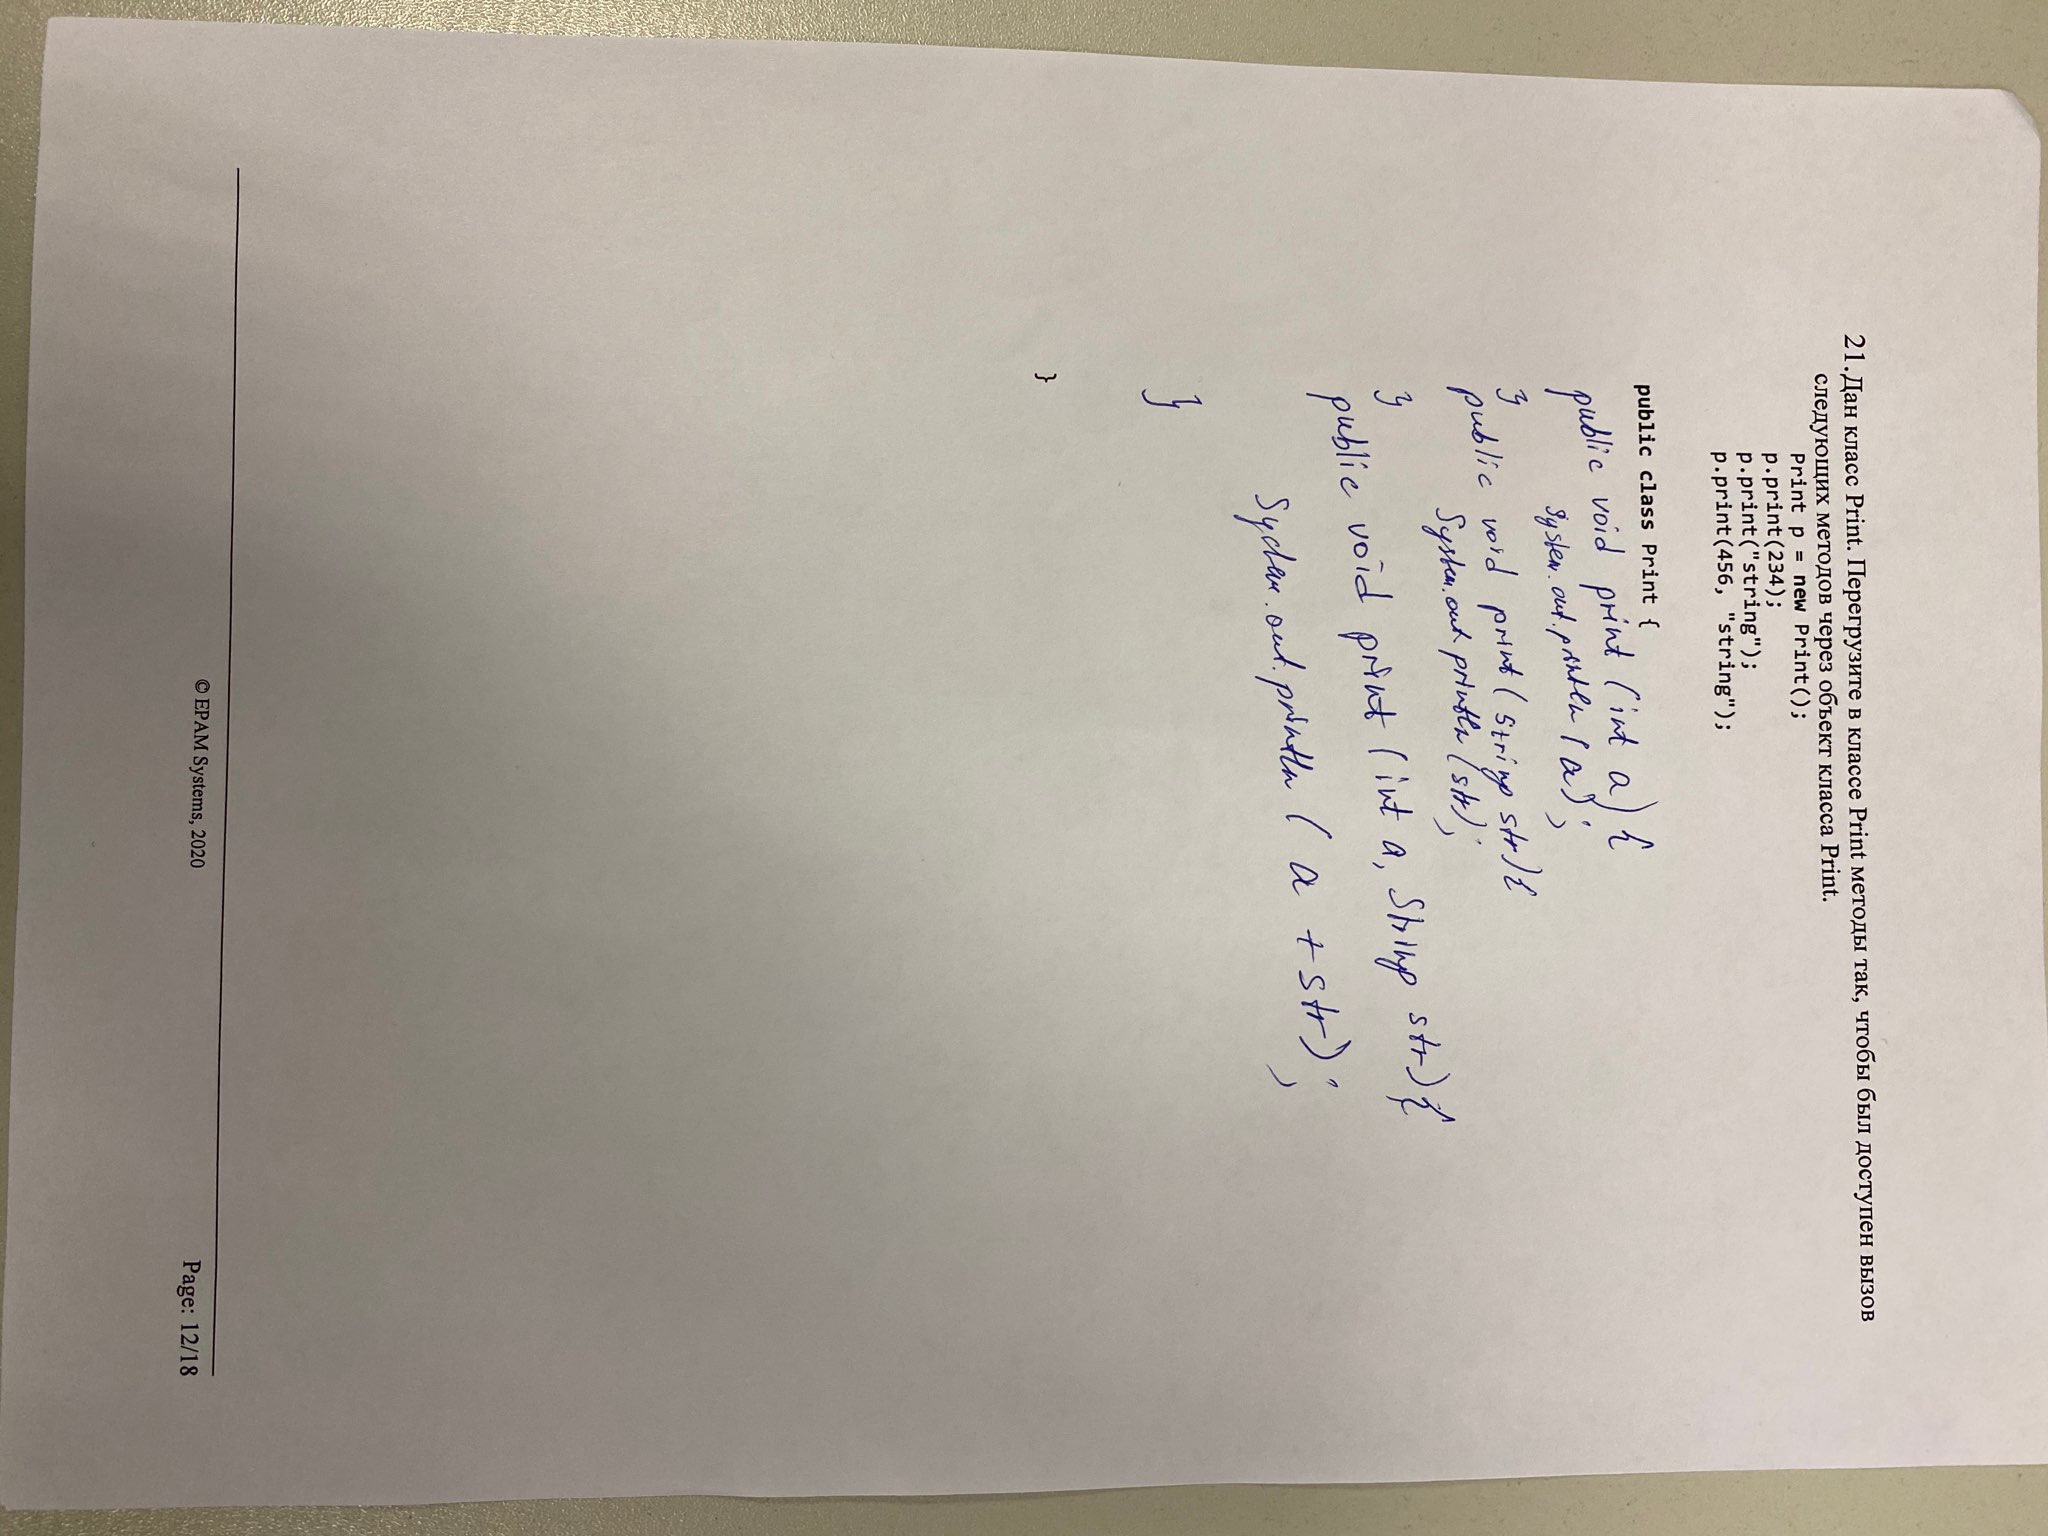 21.Дан класс Print. Перегрузите в классе Print методы так, чтобы был доступен вызов
следующих методов через объект класса Print.
Print p = new Print();
p.print(234);
p.print("string");
p.print(456, "string");
public class Print {
public void print (int a) {
System.out.println (a);
}
public void print (String str) {
System.out.println (str);
}
public void print (int a, String str) {
System.out.println ( a + str);
}
}
© EPAM Systems, 2020
Page: 12/18